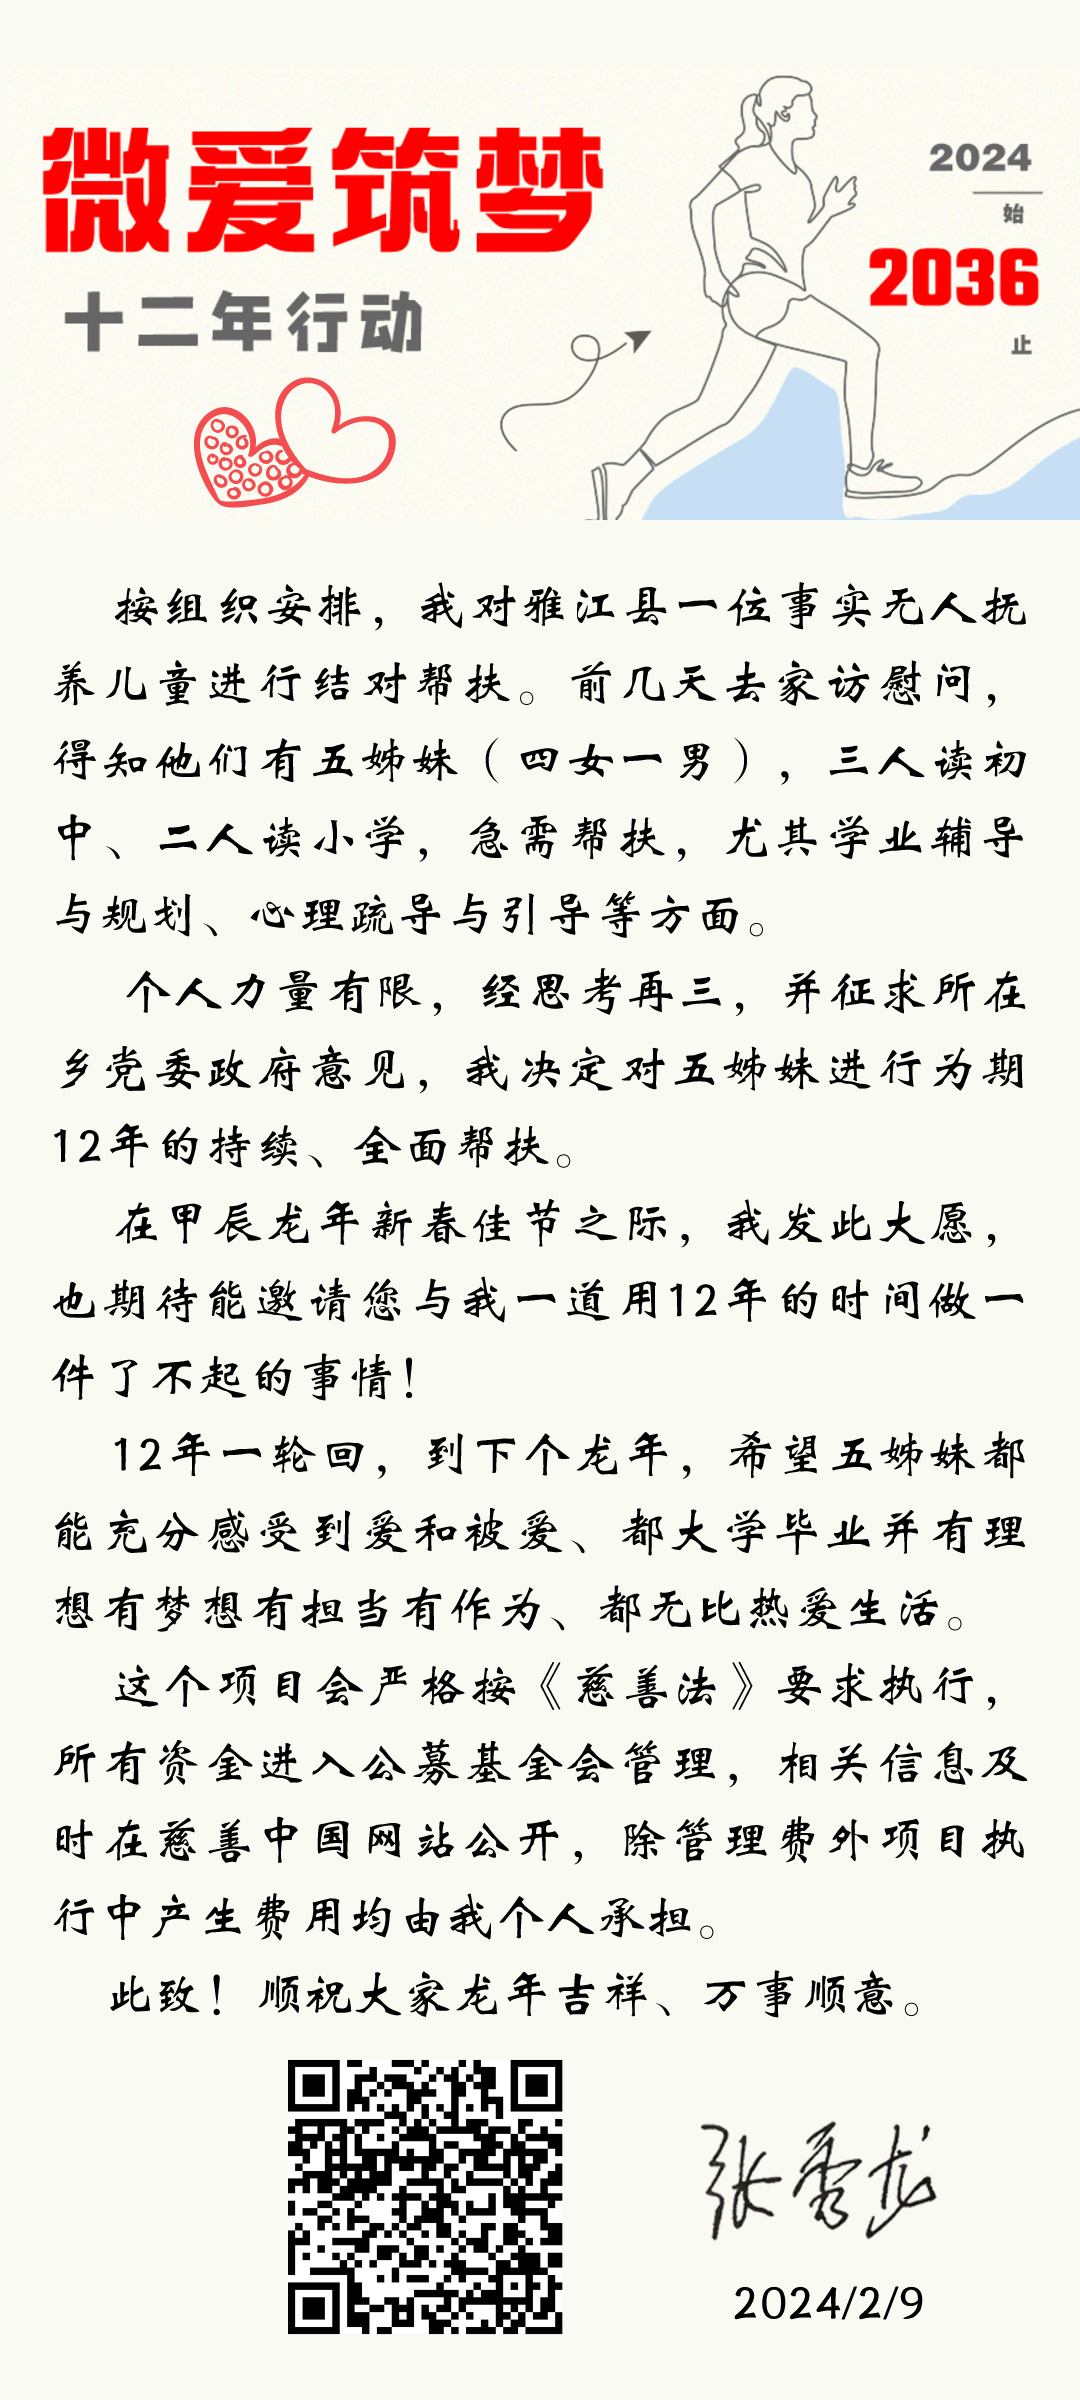 微爱筑梦
十二年行动
2024
始
2036
止
按组织安排，我对雅江县一位事实无人抚
养儿童进行结对帮扶。前几天去家访慰问，
得知他们有五姊妹（四女一男），三人读初
中、二人读小学，急需帮扶，尤其学业辅导
与规划、心理疏导与引导等方面。
个人力量有限，经思考再三，并征求所在
乡党委政府意见，我决定对五姊妹进行为期
12年的持续、全面帮扶。
在甲辰龙年新春佳节之际，我发此大愿，
也期待能邀请您与我一道用12年的时间做一
件了不起的事情！
12年一轮回，到下个龙年，希望五姊妹都
能充分感受到爱和被爱、都大学毕业并有理
想有梦想有担当有作为、都无比热爱生活。
这个项目会严格按《慈善法》要求执行，
所有资金进入公募基金会管理，相关信息及
时在慈善中国网站公开，除管理费外项目执
行中产生费用均由我个人承担。
此致！顺祝大家龙年吉祥、万事顺意。
张秀龙
2024/2/9